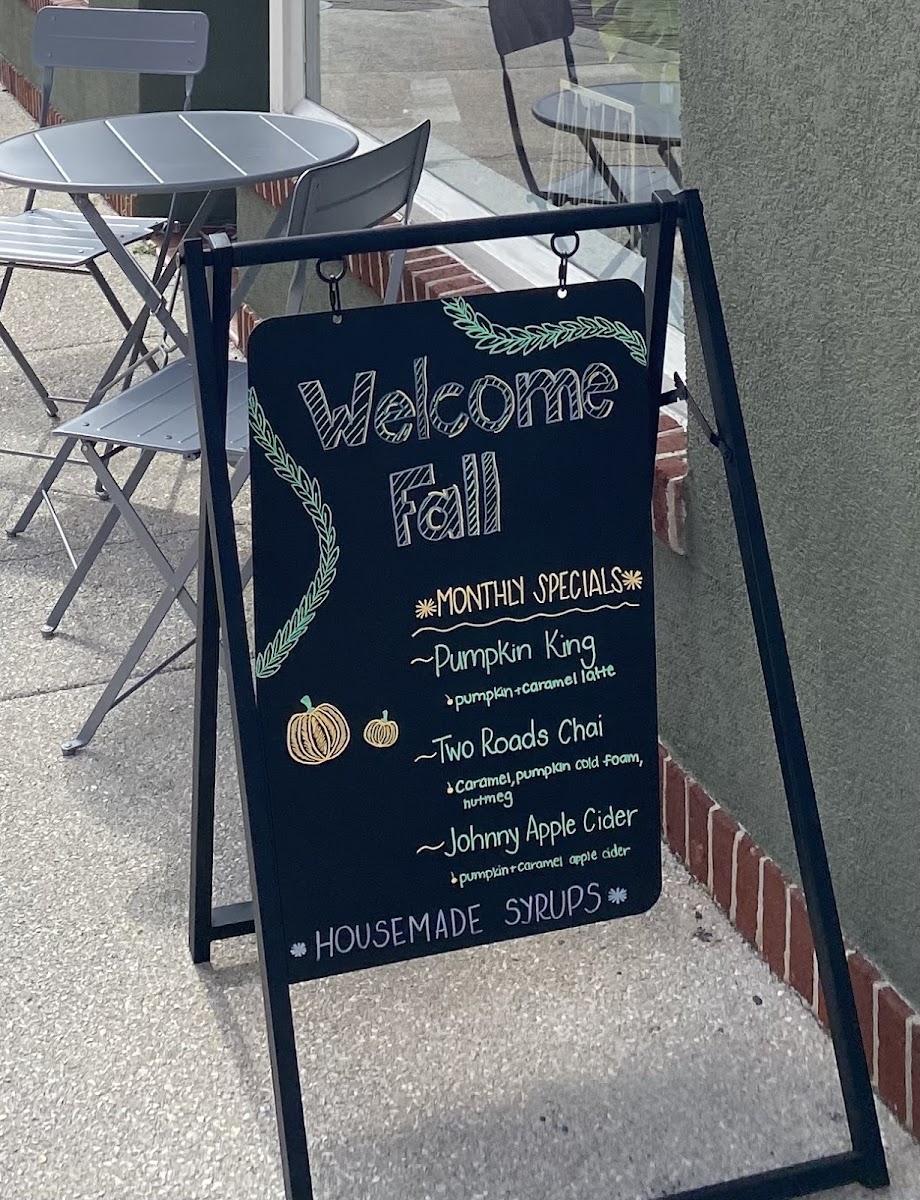 Welcome
Fall
*MONTHLY SPECIALS*
~Pumpkin King
pumpkin+caramel latte
~Two Roads Chai
Caramel, pumpkin cold foam,
nutmeg
~Johnny Apple Cider
pumpkin+caramel apple cider
* HOUSEMADE SYRUPS *